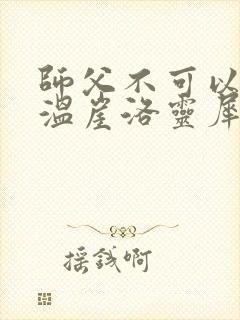 師父不可以
溫崖洛靈犀
摇錢啊